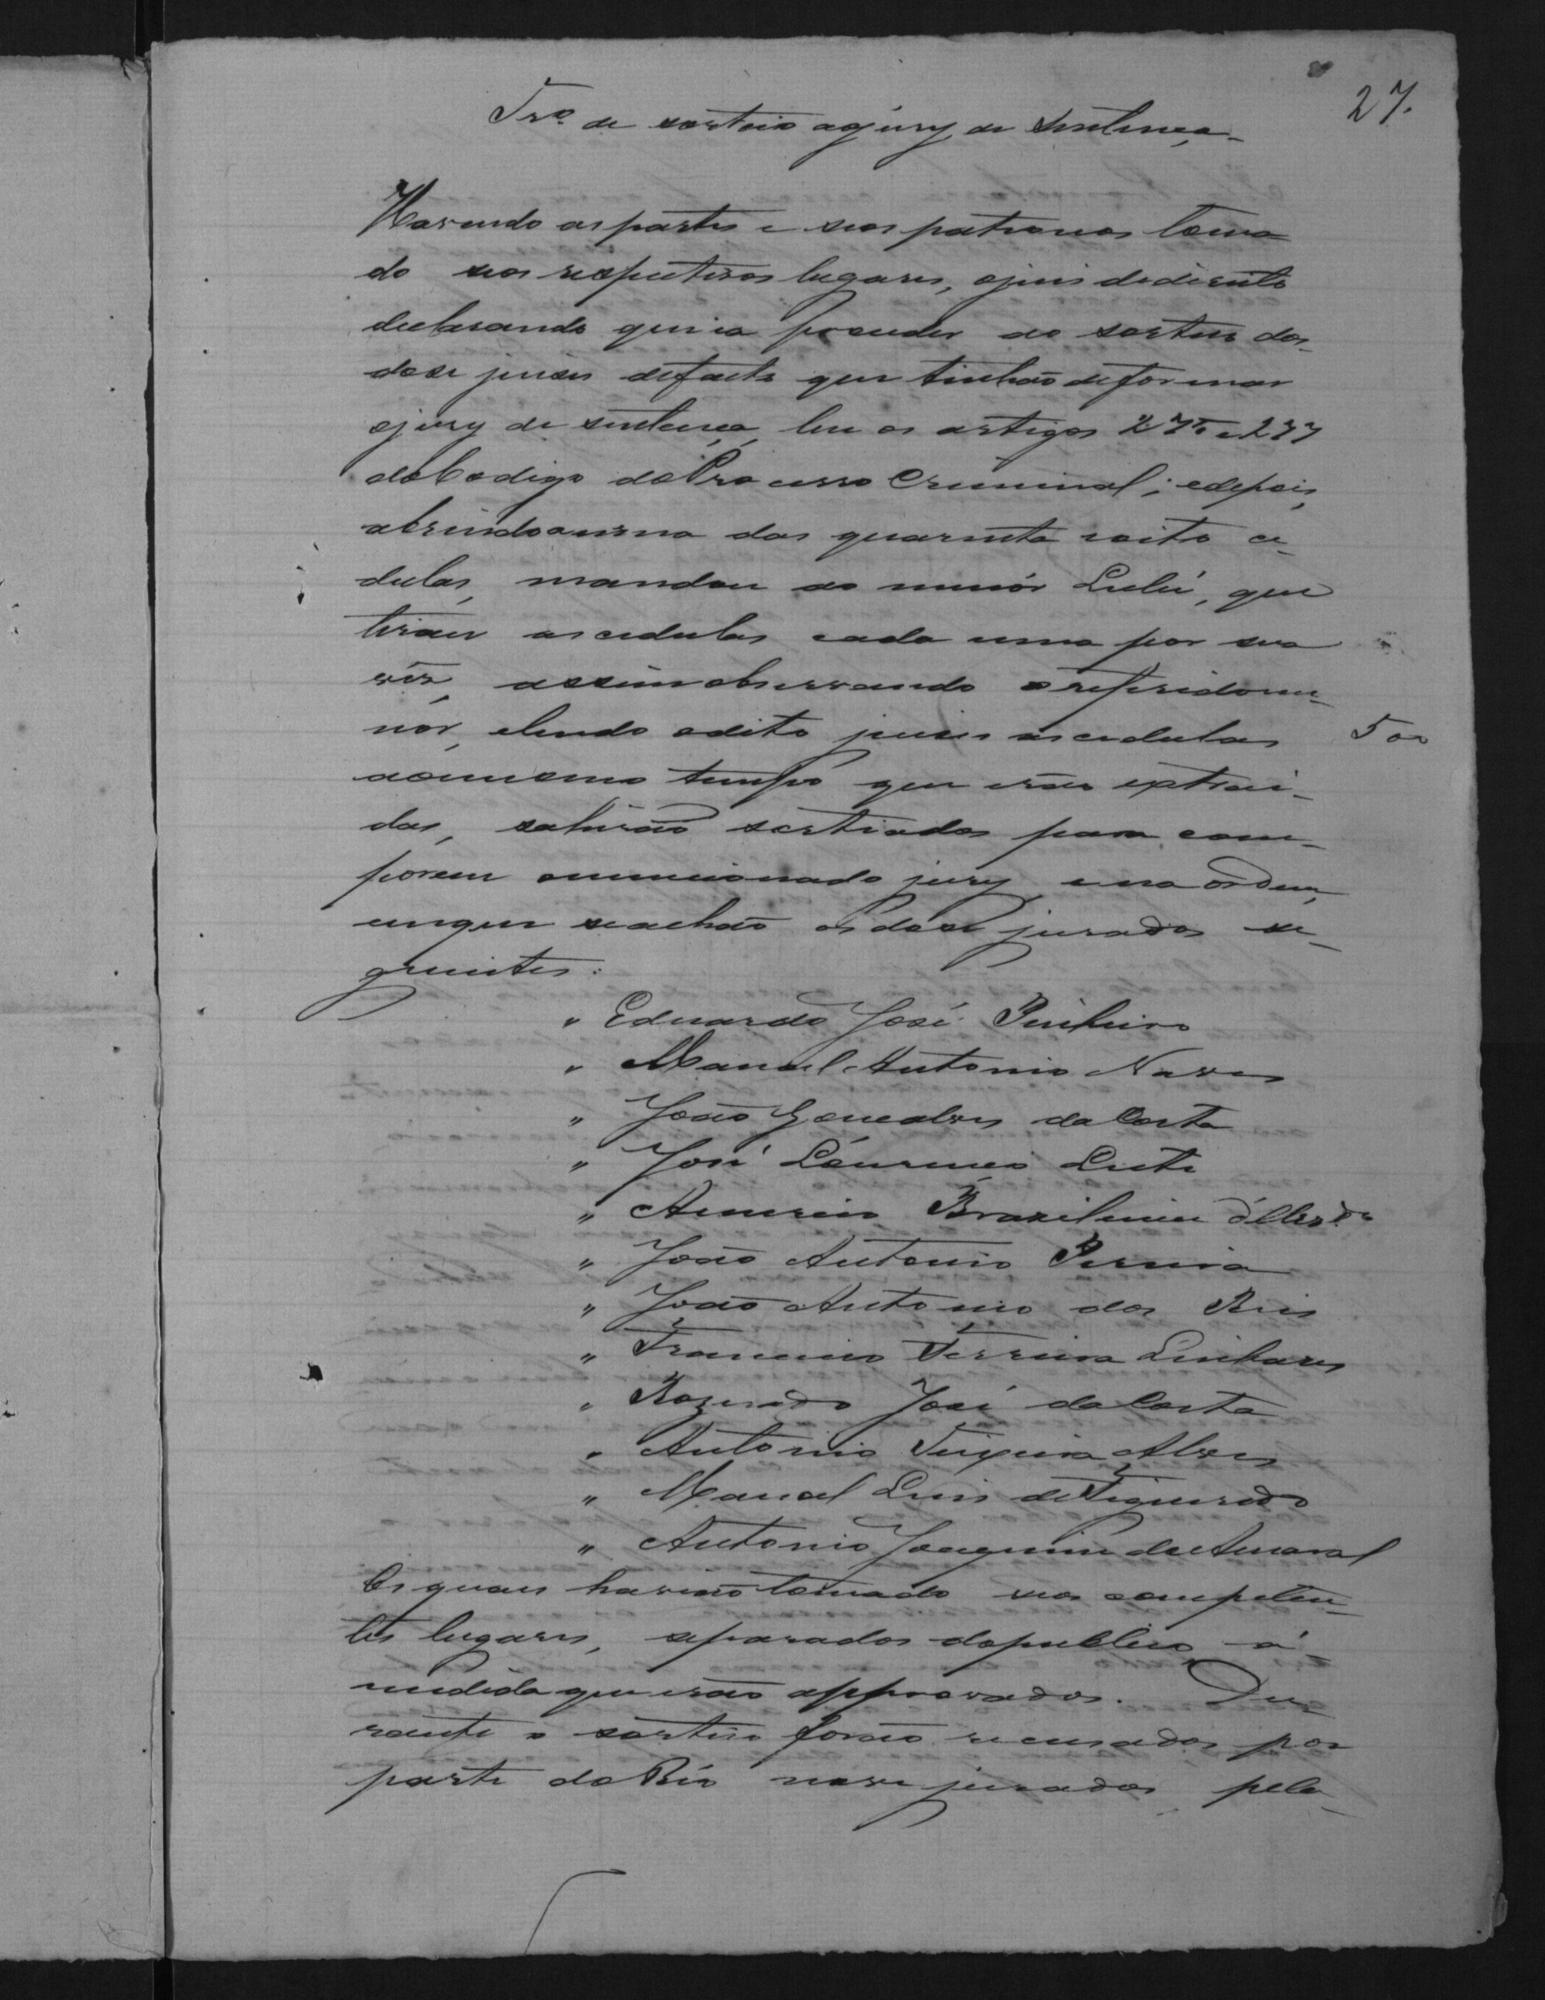 27.
Trº de sorteio a jury de sentença
Havendo as partes e seos patronos toma
do seos respectivos lugares, o juis de direito
declarando que ia proceder ao sorteio dos
dose juises de facto que tinhão de formar
o jury de sentença, leu os artigos 275 e 277
do Codigo do Processo Criminal; e depois,
abrindo a urna das quarenta e oito ce-
dulas, mandou ao menór Lulú, que
tirase as cedulas cada uma por sua
vez, assim observando o referido me-
nór, e lendo o dito juis as cedulas
500
ao mesmo tempo que erão extrai-
das, sahirão sortiados para com-
porem o mencionado jury, e na ordem,
em que se achão os dose jurados se-
guintes:
" Eduardo José Pinheiro
" Manoel Antonio Naves
" João Gonçalves da Costa
" José Lourenço Leite
" Americo Brazileiro d'Alm.da
" João Antonio Pereira
" João Antonio dos Reis
" Francisco Ferreira Linhares
" Rozendo José da Costa
" Antonio Teixeira Alves
" Manoel Luis de Figueiredo
" Antonio Joaquim do Amaral
Os quaes havião tomado seos competen-
tes lugares, separados do publico, á
medida que erão approvados. Du-
rante o sorteio forão recusados por
parte do Réo nove jurados, pelo